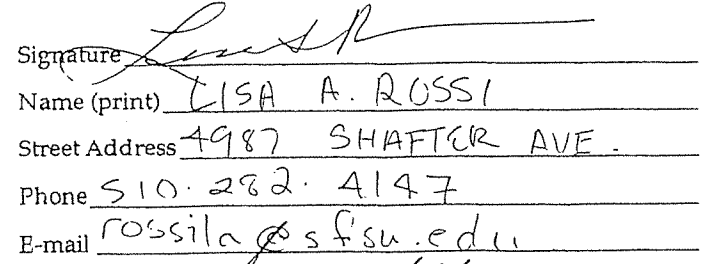 Signature
Name (print) LISA A. ROSSI
Street Address 4987 SHAFTER AVE.
Phone 510.282.4147
E-mail rossila@sfsu.edu